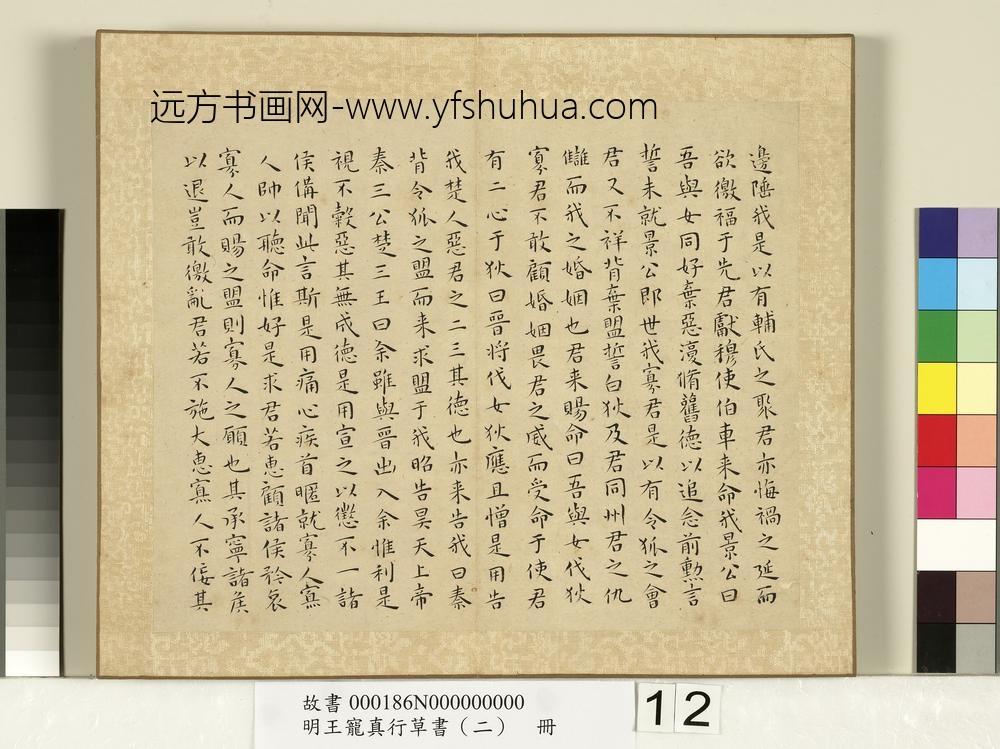 远方书画网-www.yfshuhua.com
邊陲我是以有輔氏之聚君亦悔禍之延而
欲徼福于先君獻穆使伯車来命我景公曰
吾與女同好棄惡復脩舊徳以追念前勲言
誓未就景公即世我寡君是以有令狐之會
君又不祥背棄盟誓白狄及君同州君之仇
讎而我之婚姻也君来賜命曰吾與女伐狄
寡君不敢顧婚姻畏君之威而受命于使君
有二心于狄曰晉将伐女狄應且憎是用告
我楚人惡君之二三其德也亦来告我曰秦
背令狐之盟而来求盟于我昭告昊天上帝
秦三公楚三王曰余雖與晉出入余惟利是
視不糓惡其無成徳是用宣之以懲不一諸
侯備聞此言斯是用痛心疾首暱就寡人寡
人帥以聽命惟好是求君若惠顧諸侯矜哀
寡人而賜之盟則寡人之願也其承寧諸侯
以退豈敢徼亂君若不施大惠寡人不佞其
故書 000186N000000000
明王寵真行草書（二） 冊
12